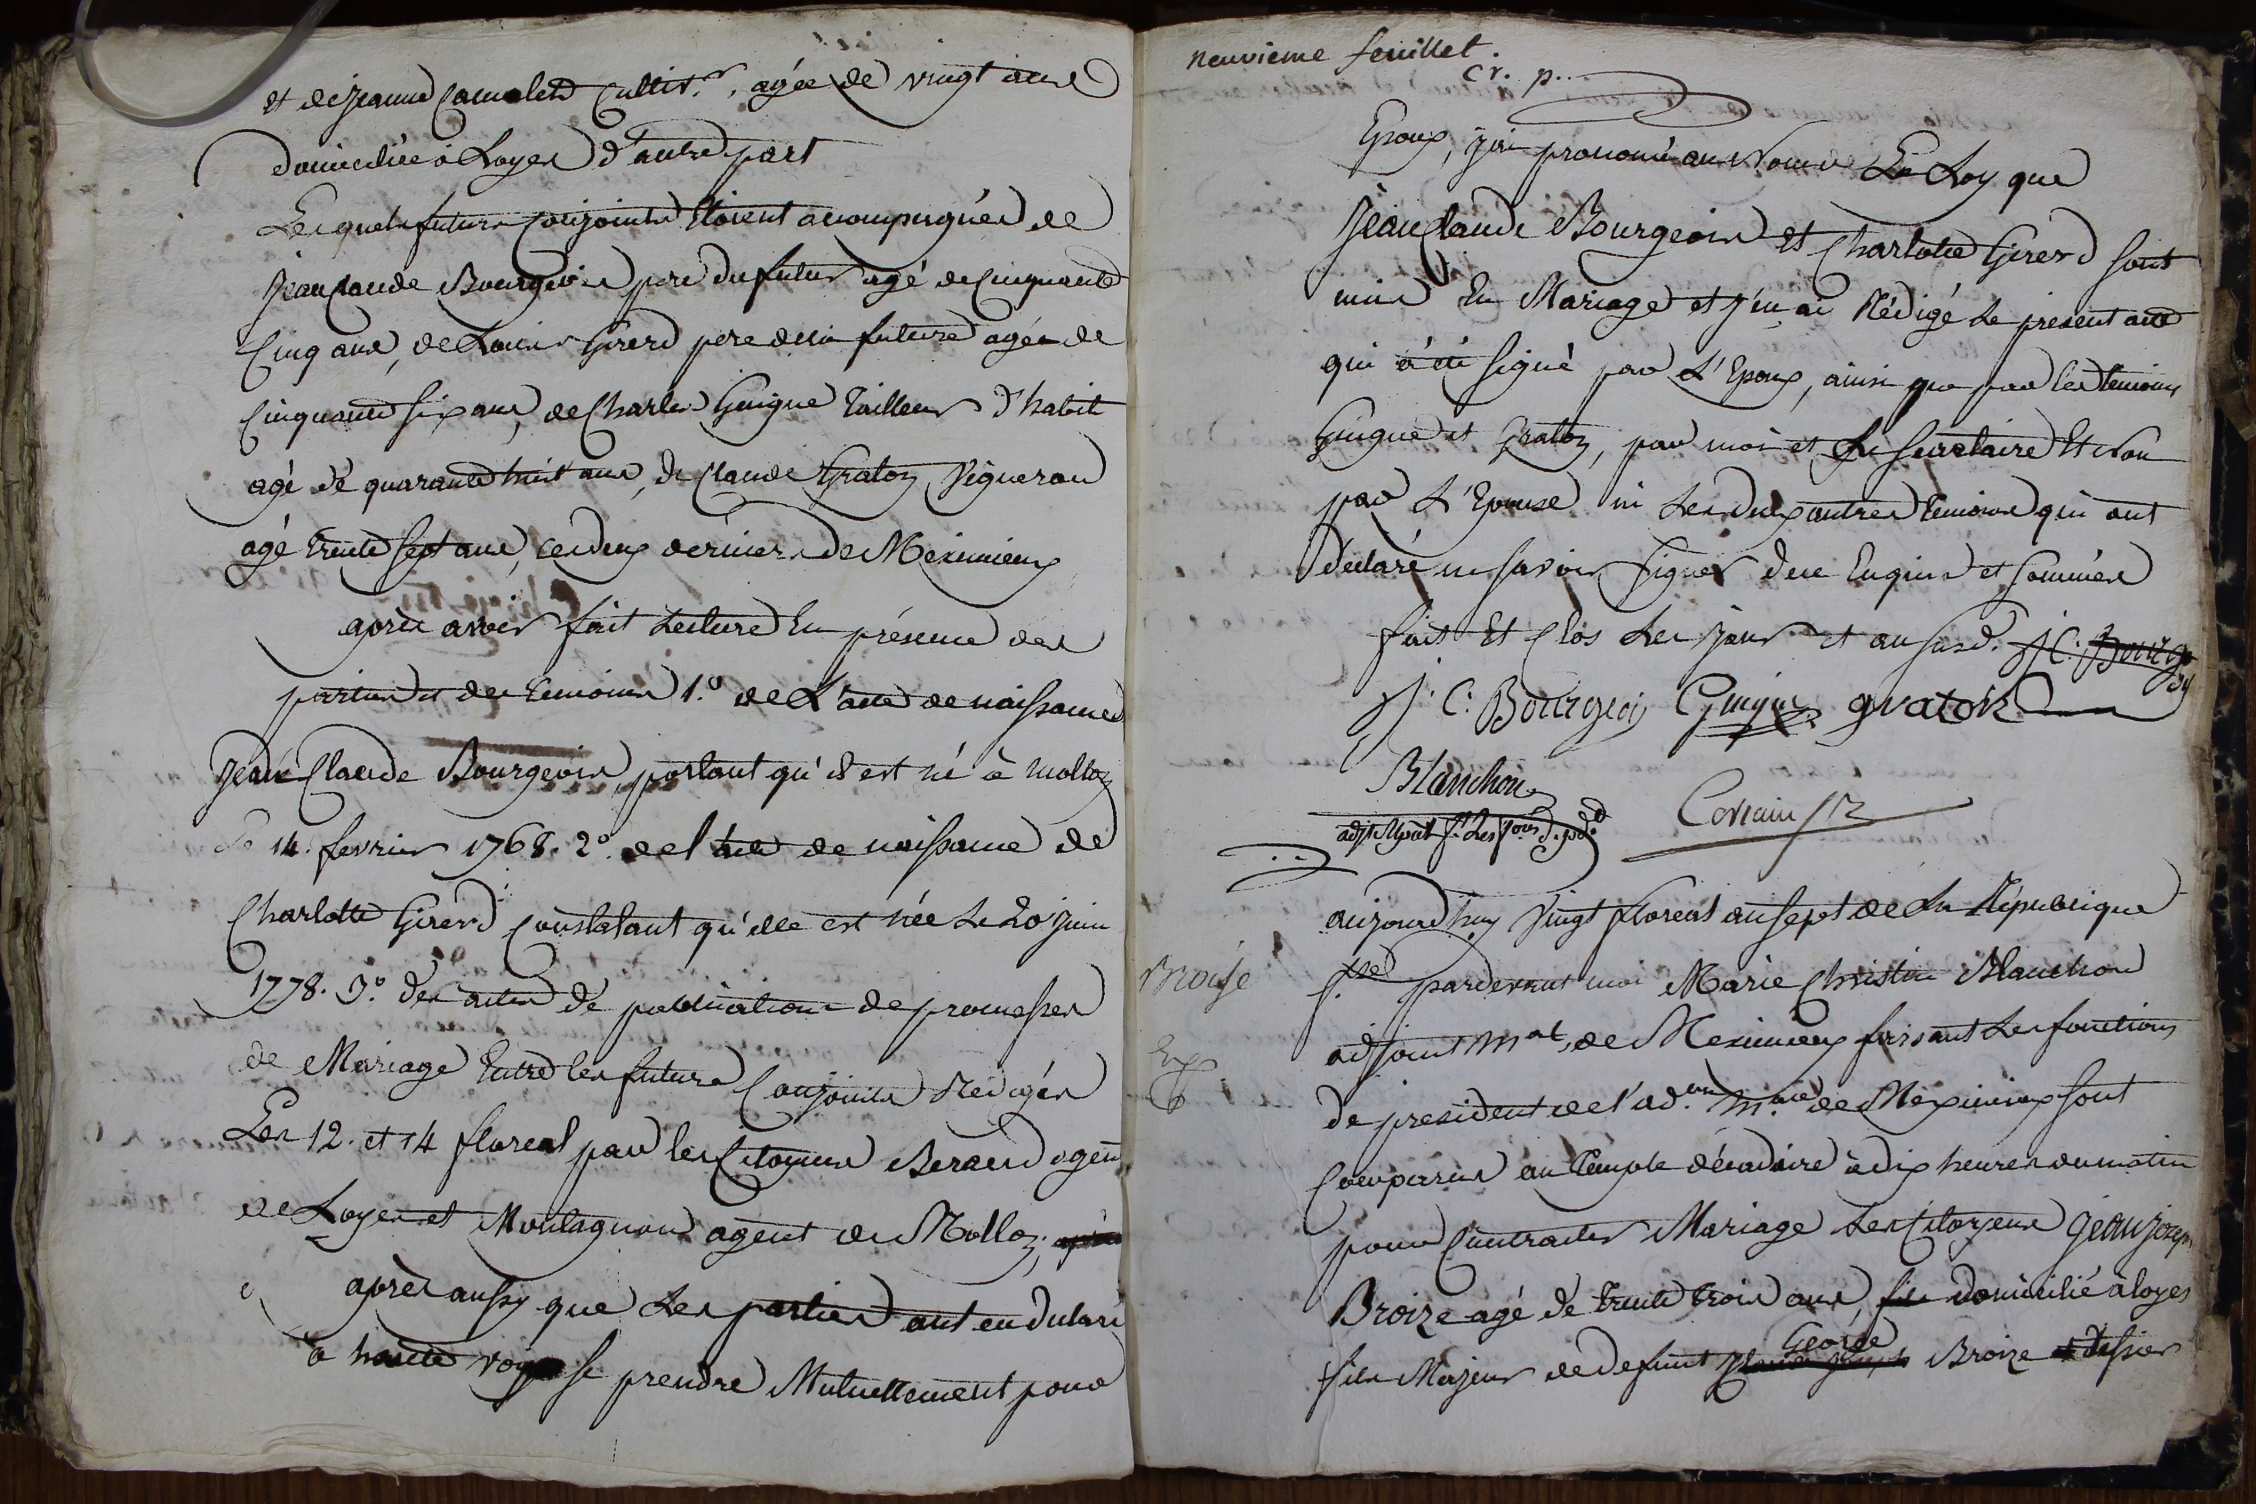 et de jeanne Camelet Cultiv.r, agée de vingt ans
domiciliée à Loyes d'autre part
Lesquels futurs Conjoints Etoient acompagnées de
Jean Claude Bourgeois pere du futur agé de Cinquante
Cinq ans, de Louis Girerd pere de la future agée de
Cinquante six ans, de Charles Guigue Tailleur d'habit
agé de quarante huit ans, de Claude Graton Vigneron
agé trente sept ans, ces deux derniers de Meximieux
après avoir fait Lecture En présence des
parties et des temoins 1.º de L'acte de naissance
Jean Claude Bourgeois, portant qu'il est né à mollon
Le 14. fevrier 1768. 2.º de l'acte de naissance de
Charlotte Girerd Constatant qu'elle est née Le 20 juin
1778. 3.º des actes de publications de promesses
de Mariage Entre les futurs Conjoints Rédigés
Les 12. et 14 floreal par les Citoyens Beraud agent
de Loyes et Montagnon agent de Mollon;
après aussy que Les parties ont eu déclaré
à haute voye se prendre Mutuellement pour
neuvieme feuillet.
cr. p..
Epoux, j'ai prononcé au Nom de La Loy que
Jean Claude Bourgeois et Charlotte Girerd sont
unis En Mariage et j'en ai Rédigé Le present acte
qui a été signé par L'Epoux, ainsi que par les temoins
Guigue et Graton, par moi et Le Secretaire Et Non
par L'Epouse ni Les deux autres temoins qui ont
déclaré ne savoir signer de ce Enquis et sommés
fait Et Clos Les jour et an susd. J C: Bourge
J. C: Bourgeois Guigue graton
Blanchon
adjt Mpal f.t Les f.ons d. pdt
Corcain
aujourdhuy Vingt floreal an sept de La République
Broise
f.se pardevant moi Marie Christin Blanchon
adjoint M.al, de Meximieux faisant Les fonctions
Ex
de president de l'ad.on M.ale de Meximieux sont
Comparus au Temple décadaire à dix heures du matin
pour Contracter Mariage Les Citoyens Jean joseph
Broize agé de trente trois ans, fils domicilié à loyes
George
fils Majeur de defunt Broize Tessier